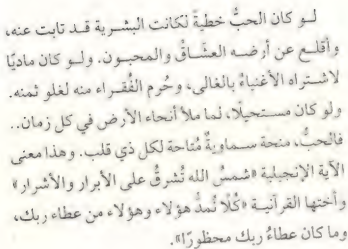 لـو كان الحبُّ خطيةً لكانت البشرية قد تابت عنه،
وأقلع عن أرضـه العشـاقُ والمحبـون. ولـو كان ماديًا
لاشـتراه الأغنياءُ بالغالي، وحُرم الفُقـراء منه لغلو ثمنه.
ولو كان مستحيلًا، لما ملأ أنحاء الأرض في كل زمان..
فالحبُّ، منحة سـماويةٌ مُتاحة لكل ذي قلب. وهذا معنى
الآية الإنجيلية «شمسُ الله تُشرقُ على الأبرار والأشرار»
وأختها القرآنيـة «كُلًّا نُمدُّ هؤلاء وهؤلاء من عطاء ربك،
وما كان عطاءُ ربك محظورًا».